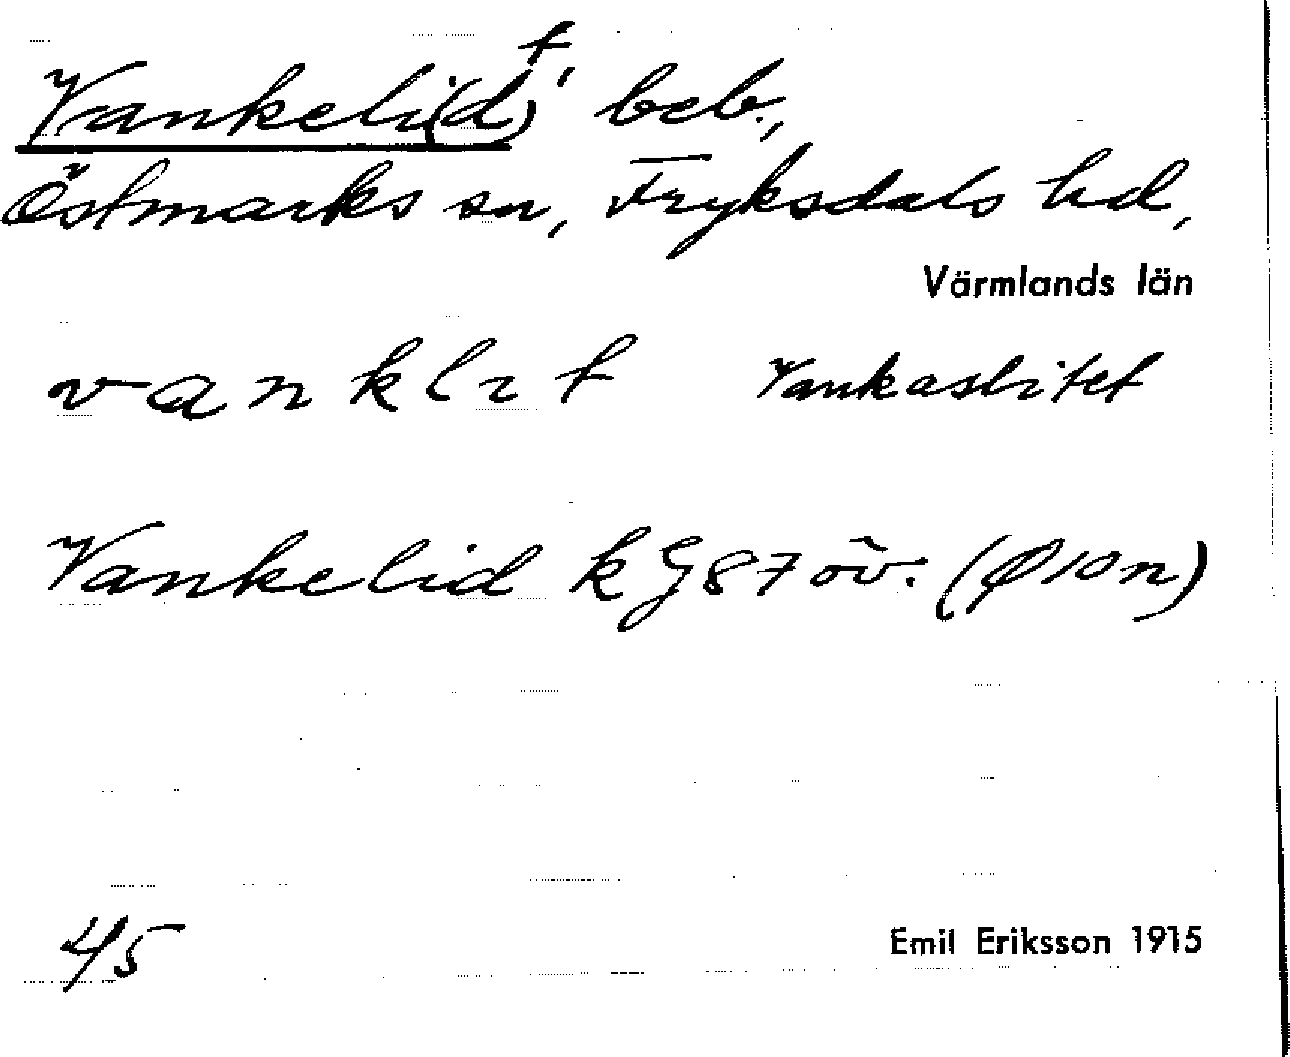 Vankeli(d)t, beb.,
Östmarks sn, Fryksdals hd,
Värmlands län
vanklit Vankaslitet
Vankelid kG87 öv. (Ø10n)
45
Emil Eriksson 1915